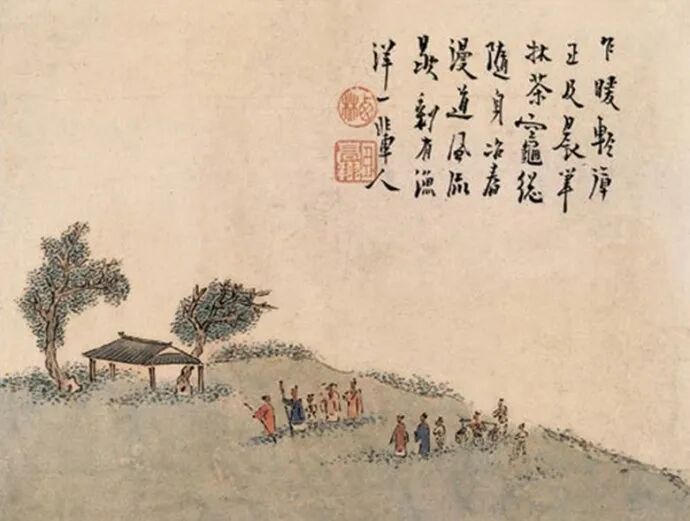 乍暖輕
正及晨筆
牀茶竈總
隨身冶春
漫道風流
剩有漁
洋一輩人